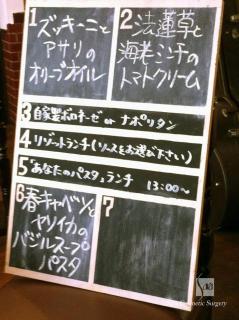 1 ズッキーニと
アサリの
オリーブオイル
2 法蓮草と
海老ミンチの
トマトクリーム
3 自家製ボロネーゼ or ナポリタン
4 リゾットランチ(ソースをお選び下さい)
5 「あなたのパスタ」ランチ 13:00〜
6 春キャベツと
ヤリイカの
バジルスープ
パスタ
7
Surgery